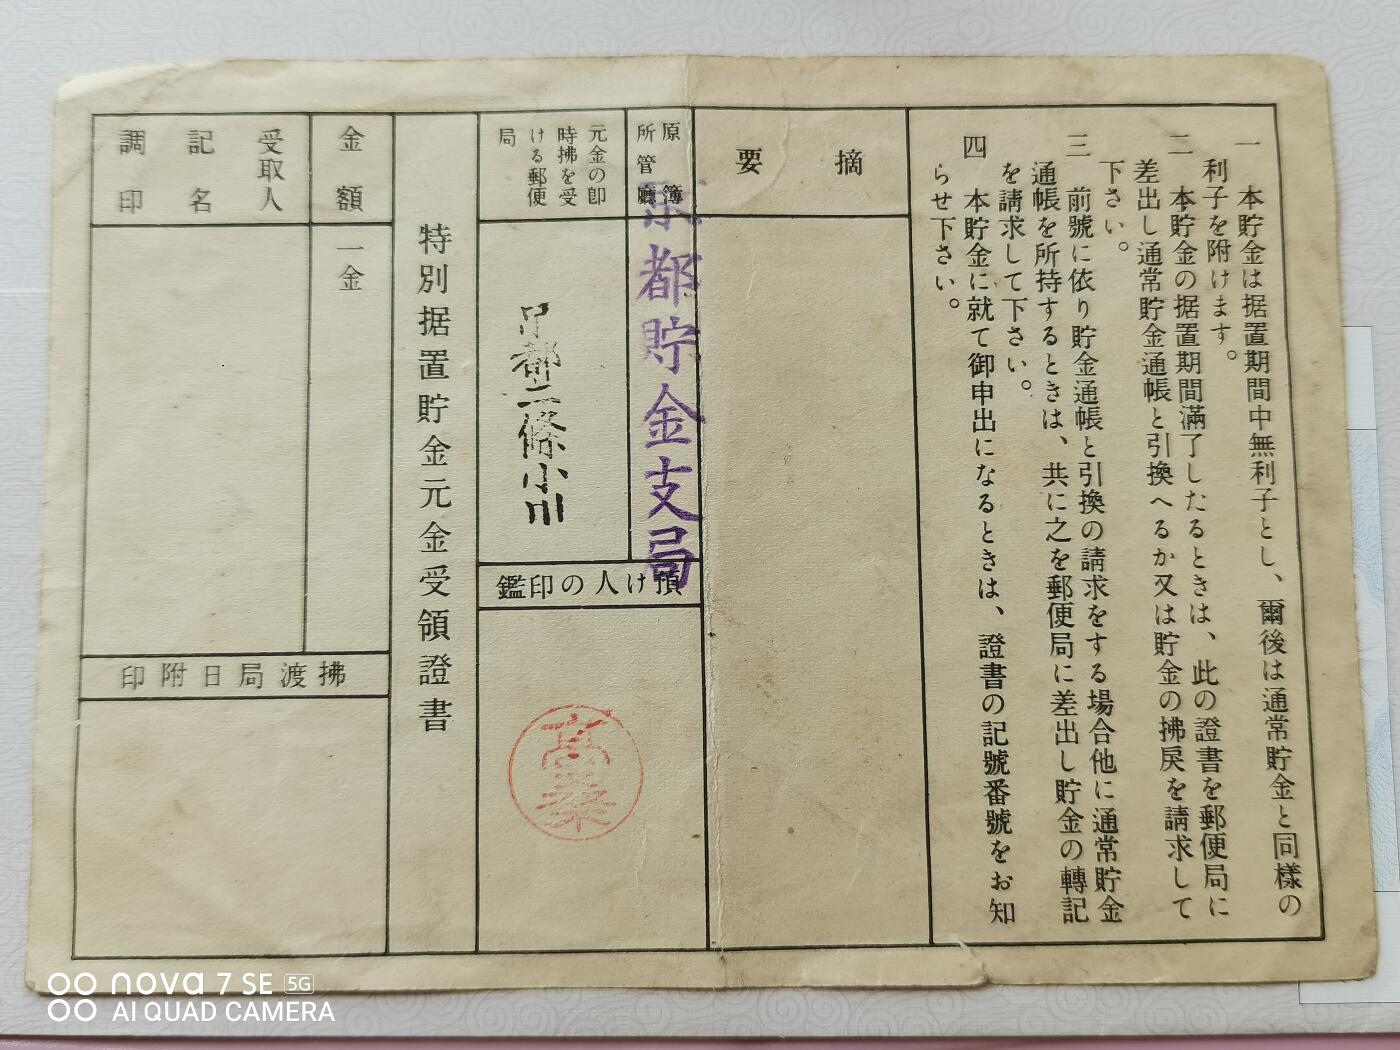 一　本貯金は据置期間中無利子とし、爾後は通常貯金と同樣の
利子を附けます。
二　本貯金の据置期間滿了したるときは、此の證書を郵便局に
差出し通常貯金通帳と引換へるか又は貯金の拂戻を請求して
下さい。
三　前號に依り貯金通帳と引換の請求をする場合他に通常貯金
通帳を所持するときは、共に之を郵便局に差出し貯金の轉記
を請求して下さい。
四　本貯金に就て御申出になるときは、證書の記號番號をお知
らせ下さい。
摘要
原簿
所管廳
京都貯金支局
元金の卽
時拂を受
ける郵便
局
京都二條小川
預け人の印鑑
高桑
特別据置貯金元金受領證書
金額
一金
受取人
記名
調印
拂渡局日附印
nova 7 SE 5G
AI QUAD CAMERA